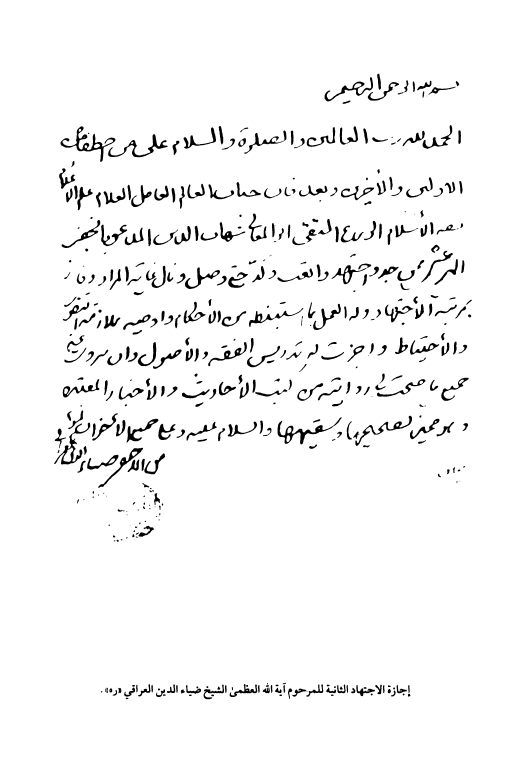 بسم الله الرحمن الرحيم
الحمد لله رب العالمين والصلوة والسلام على من اصطفاه من
الاولين والأخرين وبعد فان جناب العالم العامل العلام علم الأعلام
ثقة الأسلام الورع التقي ابو المعالي شهاب الدين المدعو بالنجفي
المرعشي ممن جد واجتهد واتعب وكد حتى وصل ونال غاية المراد وفاز
بمرتبة الأجتهاد وله العمل بما استنبطه من الأحكام واوصيه بملازمة التقوى
والأحتياط واجزت له تدريس الفقه والأصول وان يروي عني
جميع ما صحت لي روايته من كتب الأحاديث والأخبار المعتبرة
وهو خبير بصحيحها وسقيمها والسلام عليه وعلى جميع الأخوان
من الأحقر ضياء الدين العراقي
إجازة الاجتهاد الثانية للمرحوم آية الله العظمىٰ الشيخ ضياء الدين العراقي «ره».